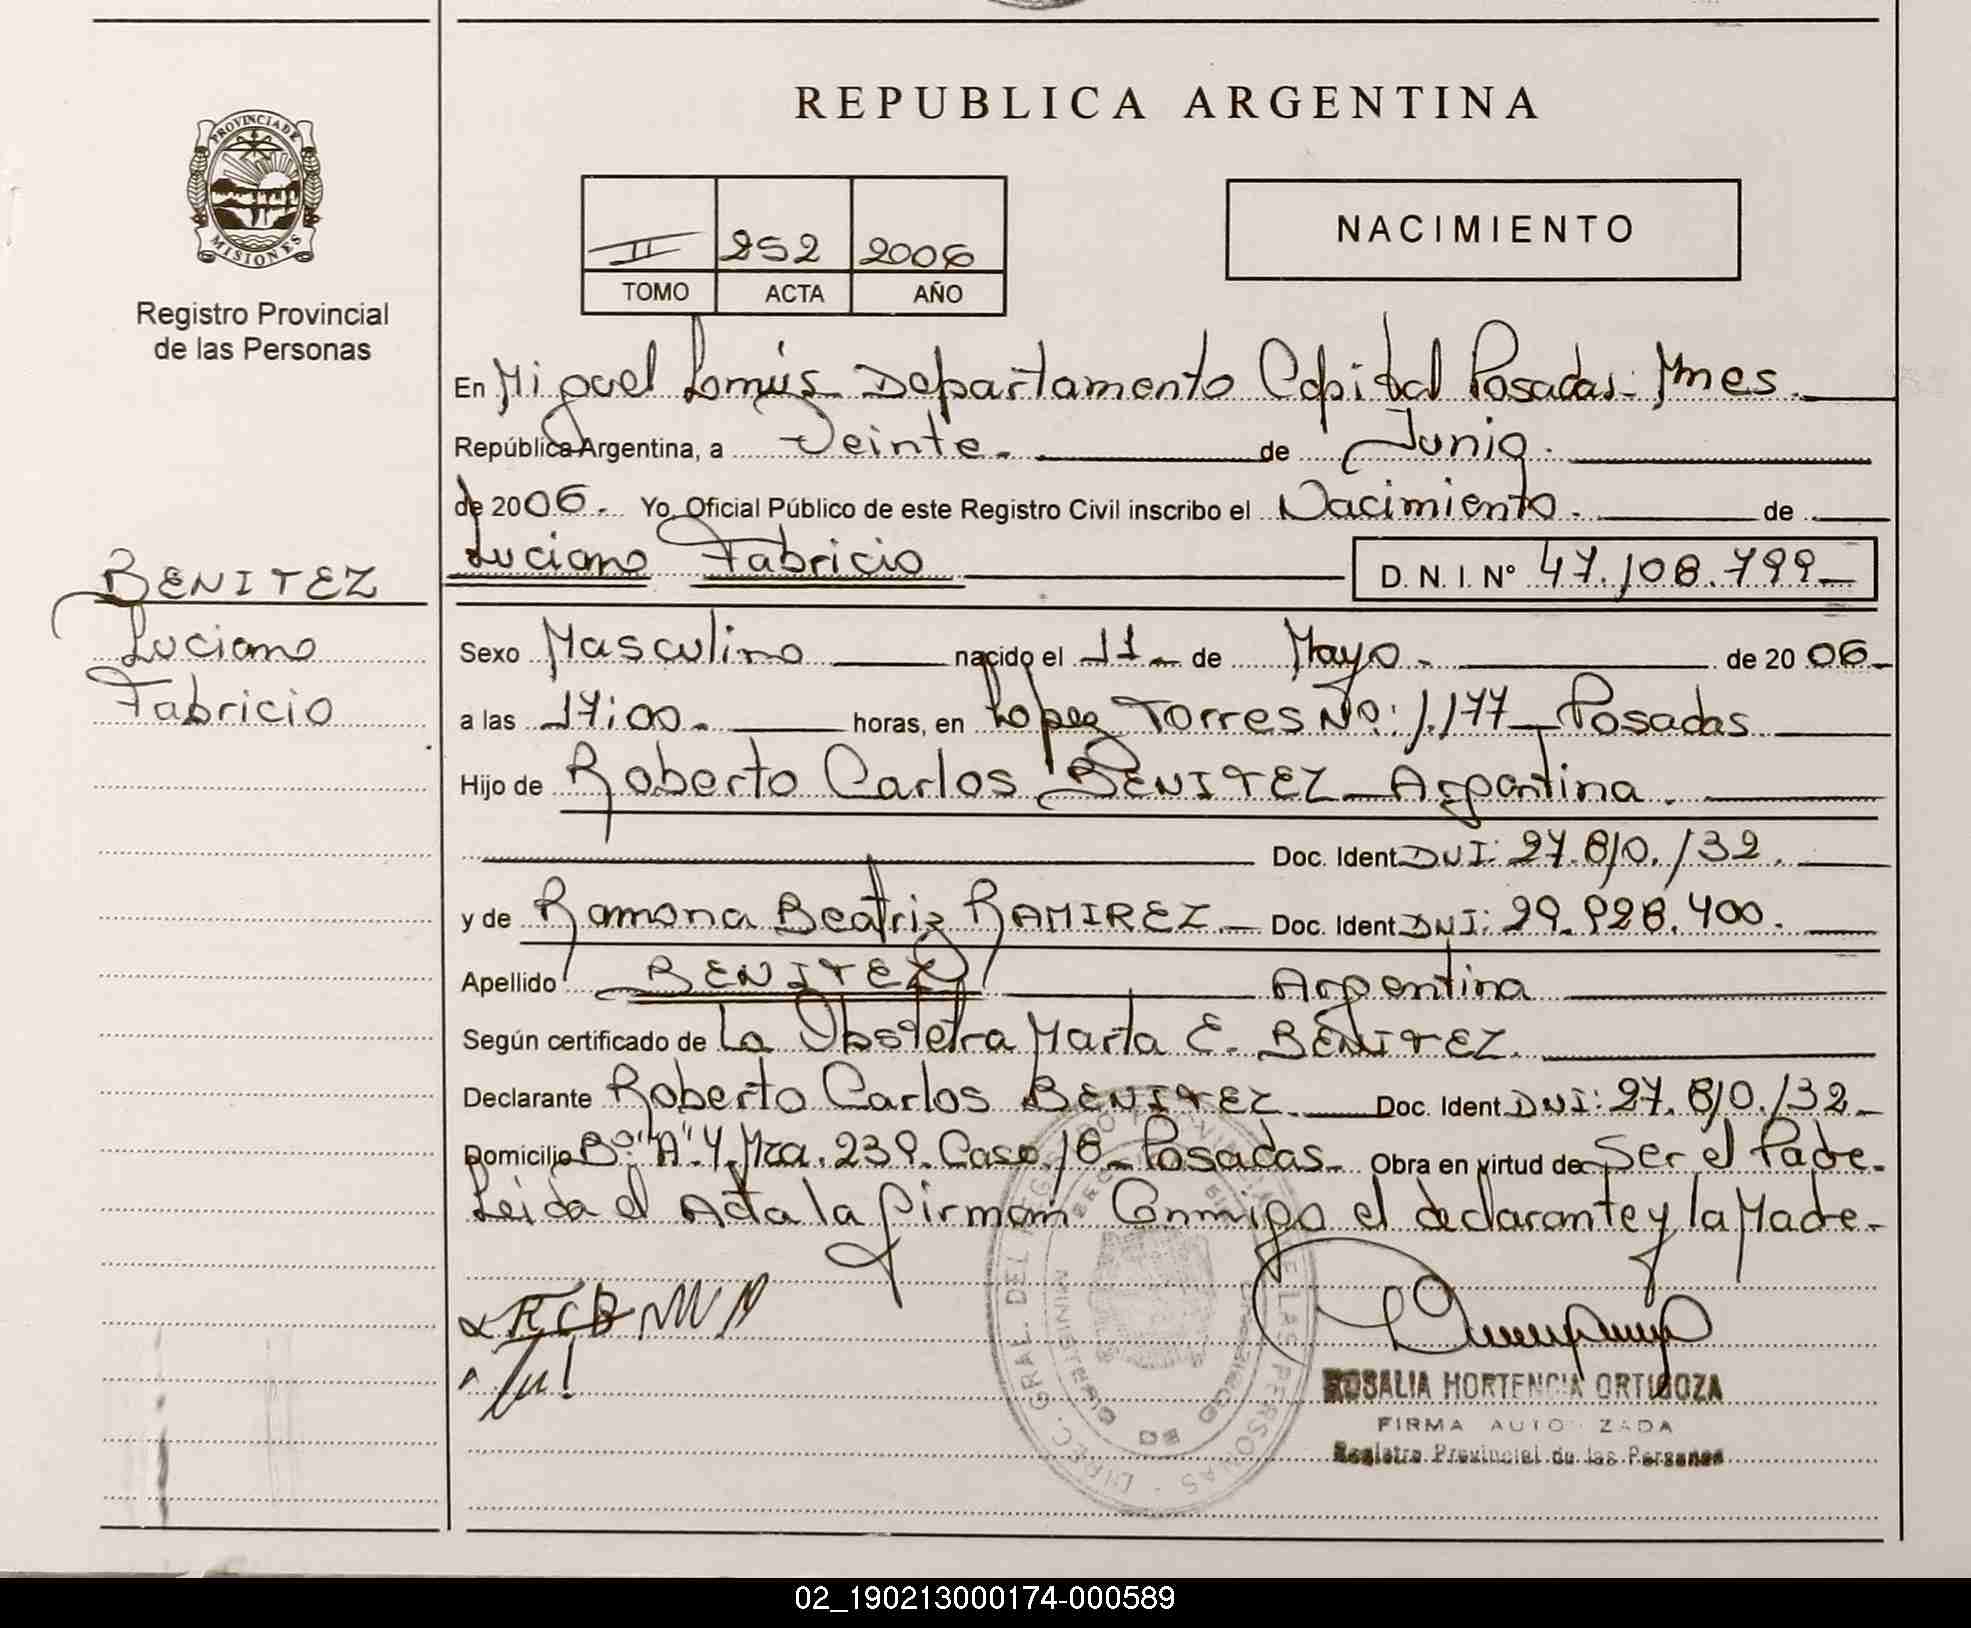 REPUBLICA ARGENTINA
PROVINCIA DE
MISIONES
Registro Provincial
de las Personas
II 252 2006
TOMO ACTA AÑO
NACIMIENTO
En Miguel Lanús Departamento Capital Posadas- Mnes.
República Argentina, a Veinte. de Junio.
de 2006. Yo, Oficial Público de este Registro Civil inscribo el Nacimiento. de
Luciano Fabricio D. N. I. N° 47.108.799
BENITEZ
Luciano
Fabricio
Sexo Masculino nacido el 11 de Mayo. de 2006
a las 17:00. horas, en Lopez Torres No: 1.177 Posadas
Hijo de Roberto Carlos BENITEZ Argentina.
Doc. Ident. DNI: 27.810.132.
y de Ramona Beatriz RAMIREZ. Doc. Ident. DNI: 29.928.400.
Apellido BENITEZ Argentina
Según certificado de La Obstetra Marta E. BENITEZ.
Declarante Roberto Carlos BENITEZ. Doc. Ident. DNI: 27.810.132
Domicilio Bº "A" 4. Mza. 239. Casa. 18 Posadas Obra en virtud de Ser el Padre.
Leida el Acta la firman Conmigo el declarante y la Madre
ROSALIA HORTENCIA ORTIGOZA
FIRMA AUTORIZADA
Registro Provincial de las Personas
02_190213000174-000589